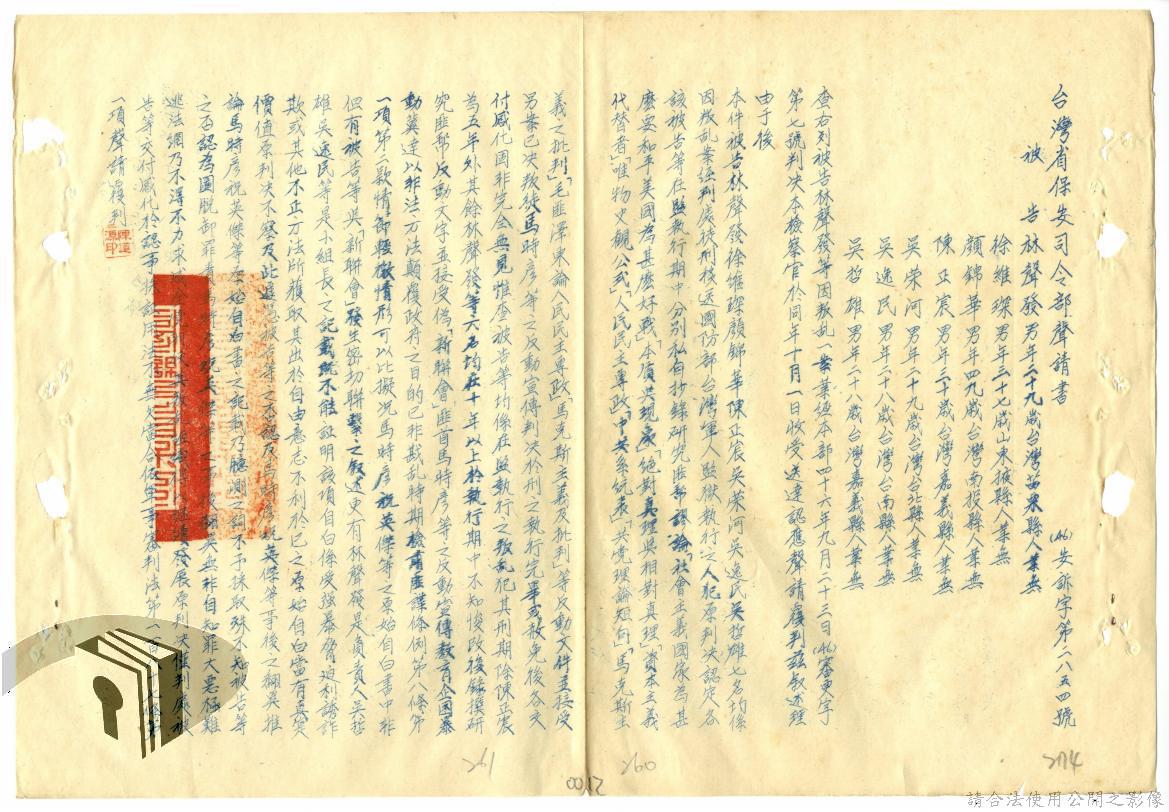 台灣省保安司令部聲請書
(46)安訴字第二八五四號
被 告 林聲發男年二十九歲台灣苗栗縣人業無
徐維琛男年三十七歲山東掖縣人業無
顏錦華男年四九歲台灣南投縣人業無
陳正宸男年三十歲台灣嘉義縣人業無
吳榮河男年二十九歲台灣台北縣人業無
吳逸民男年二十八歲台灣台南縣人業無
吳哲雄男年二十八歲台灣嘉義縣人業無
查右列被告林聲發等因叛乱一案業經本部四十六年九月二十三日(46)審更字
第七號判決本檢察官於同年十月一日收受送達認應聲請覆判茲叙述理
由于後
本件被告林聲發徐維琛顏錦華陳正宸吳榮河吳逸民吳哲雄七名均係
因叛乱案經判處徒刑核送國防部台灣軍人監獄執行之人犯原判決認定各
該被告等在監執行期中分別私自抄錄研究匪部謬論「社會主義國家為甚
麼要和平美國為甚麼好戰」「本质與現象」「絕對真理與相對真理」「資本主義
代替者」「唯物史觀公式」「人民民主專政」「中共系統表」「共党理論短句」「馬克斯主
義之批判」「毛匪澤東論人民民主專政」「馬克斯主義及批判」等反動文件並接受
另案已決叛徒馬時彥等之反動宣傳判決於刑之執行完畢或赦免後各交
付感化固非完全無見惟查被告等均係在監執行之叛乱犯其刑期除陳正宸
為五年外其餘林聲發等六名均在十年以上於執行期中不知悛改復錄摸研
究匪部反動文字並接受偽「新聯會」匪首馬時彥等之反動宣傳教育企圖暴
動冀達以非法之方法顛覆政府之目的已非戡乱時期檢肅匪諜條例第八條第
一項第二款情節輕微情形可以比擬况馬時彥祝英傑等之原始自白書中非
但有被告等與「新聯會」發生密切聯繫之叙述更有林聲發是負責人吳哲
雄吳逸民等是小組長之記載既不能証明該項自白係受強暴脅迫利誘詐
欺或其他不正方法所獲取其出於自由意志不利於己之原始自白當有真實
價值原判決不察及此遽憑被告等之不認及馬時彥祝英傑等事後之翻異推
論馬時彥祝英傑等原始自白書之記載乃臆測之詞不予採取殊不知被告等
之否認為圖脫卸罪責馬時彥祝英傑等之事後翻異無非自知罪大惡極難
逃法網乃不得不力求發展原判決僅判處被
告等交付感化於認事法第一百八十七條第
一項聲請覆判
274
260
261
0012
請合法使用公開之影像